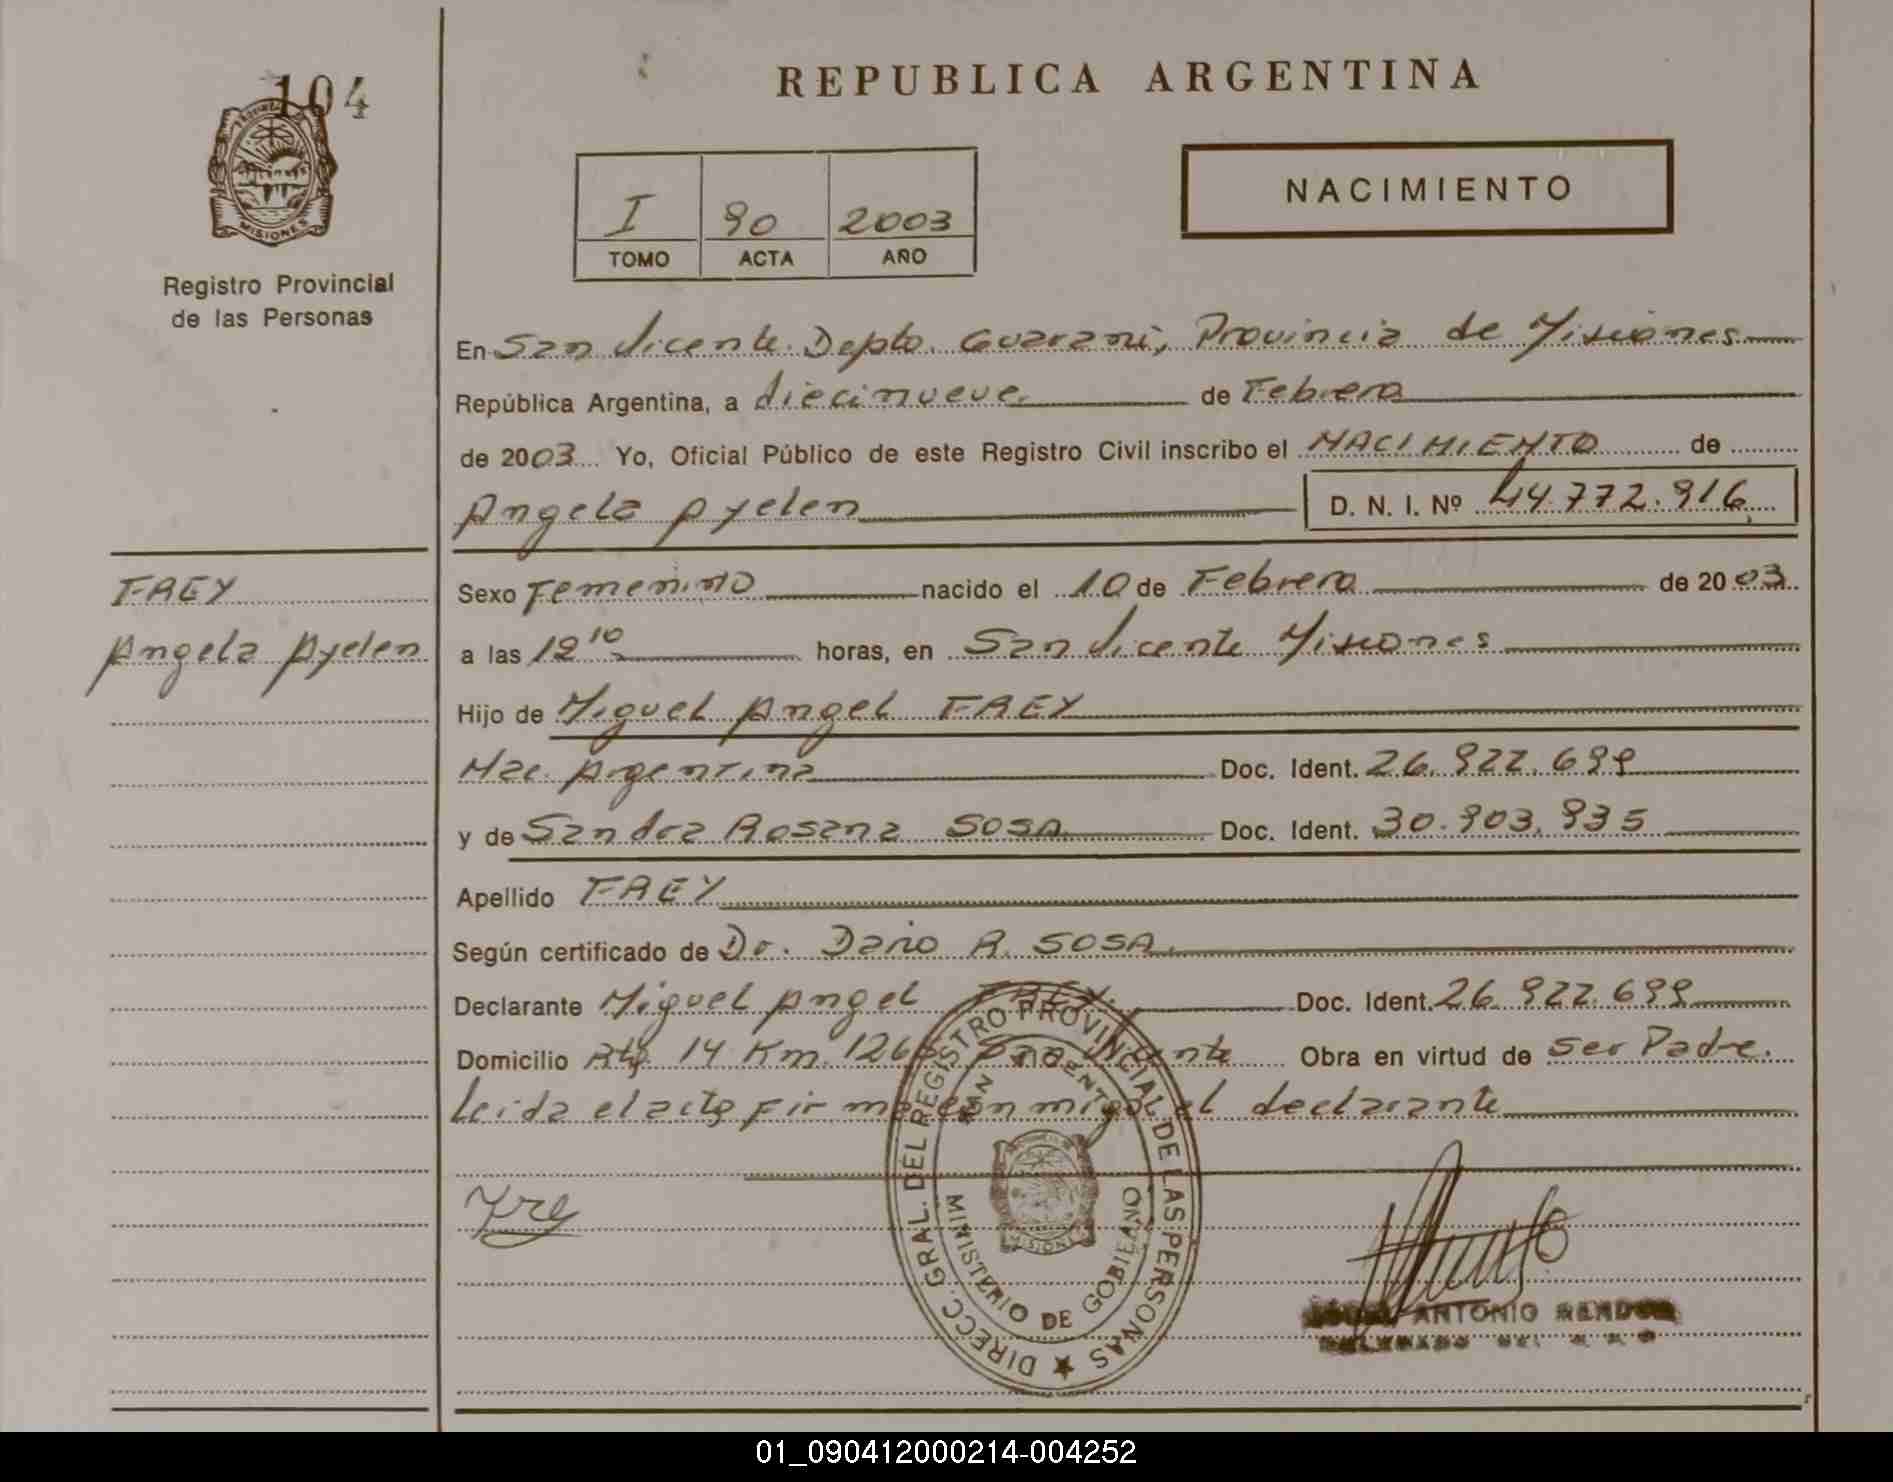 104
PROVINCIA DE
MISIONES
Registro Provincial
de las Personas
REPUBLICA ARGENTINA
I 90 2003
TOMO ACTA AÑO
NACIMIENTO
En San Vicente. Depto. Guarani, Provincia de Misiones
República Argentina, a diecinueve de Febrero
de 2003 Yo, Oficial Público de este Registro Civil inscribo el NACIMIENTO de
Angela Ayelen D. N. I. Nº 44.772.916
FREY
Angela Ayelen
Sexo Femenino nacido el 10 de Febrero de 2003
a las 12 10 horas, en San Vicente Misiones
Hijo de Miguel Angel FREY
Nac. Argentina Doc. Ident. 26.922.699
y de Sandra Rosana SOSA Doc. Ident. 30.903.935
Apellido FREY
Según certificado de Dr. Dario R. SOSA.
Declarante Miguel Angel FREY. Doc. Ident. 26.922.699
Domicilio Rta. 14 Km. 1265 Vicente Obra en virtud de ser Padre.
Leida el acta firma conmigo el declarante
DIRECC. GRAL. DEL REGISTRO PROVINCIAL DE LAS PERSONAS
SAN VICENTE
MISIONES
MINISTERIO DE GOBIERNO
ANTONIO
01_090412000214-004252